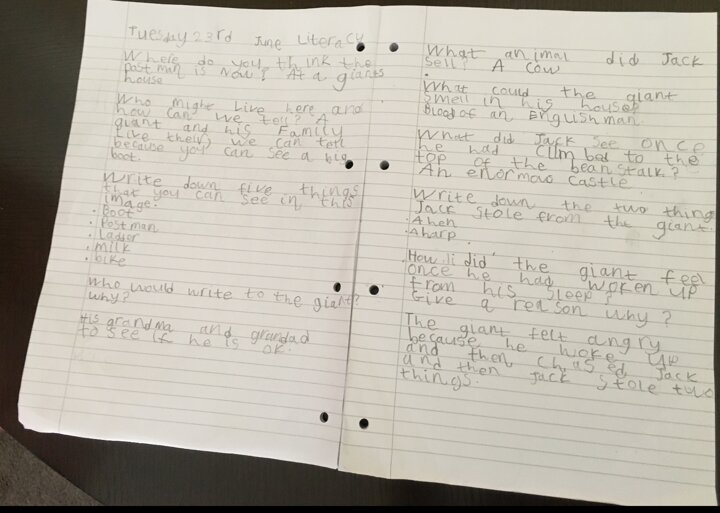 Tuesday 23rd June Literacy
Where do you think the
postman is now? At a giants
house
Who might live here and
how can we tell? A
giant and his family
live there) we can tell
because you can see a big
boot.
Write down five things
that you can see in this
image.
• Boot
• Postman
• Ladder
• milk
• bike
who would write to the giant?
why?
His grandma and grandad
to see if he is ok.
What animal did Jack
sell? A cow
What could the giant
smell in his house?
Blood of an Englishman.
What did Jack see once
he had climbed to the
top of the beanstalk?
An enormous castle
Write down the two thing
Jack stole from the giant.
• A hen
• A harp.
How did the giant feel
once he had woken up
from his sleep?
Give a reason why?
The giant felt angry
because he woke up
and then chased Jack
and then Jack stole two
things.